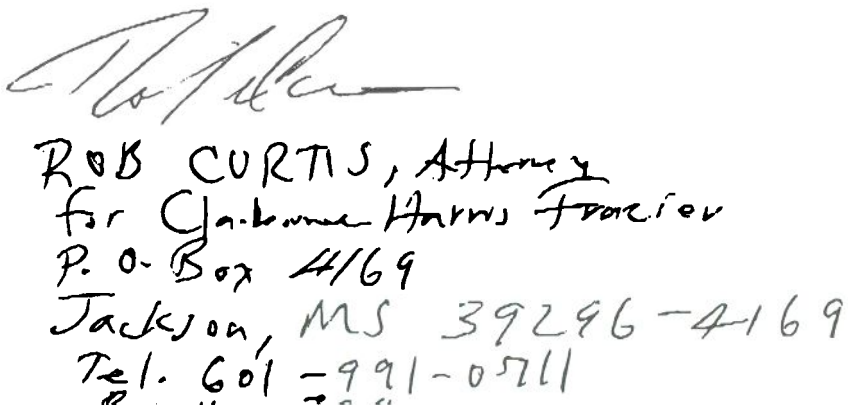 ROB CURTIS, Attorney
for Claiborne Harris Frazier
P. O. Box 4169
Jackson, MS 39296-4169
Tel. 601-991-0711